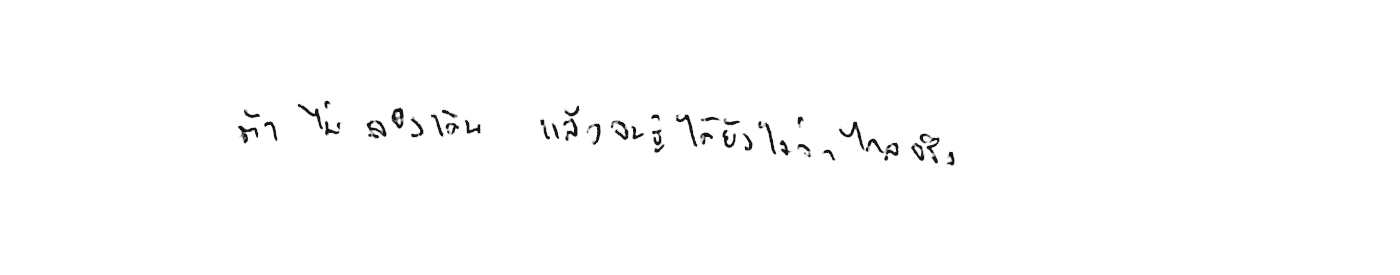 ถ้า ไม่ ลองเดิน แล้วจะรู้ได้ยังไงว่าไกลจริง